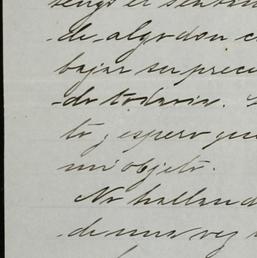 tengo el sentim
de algodon c
bajar su prec
do todavia.
to y espero que
mi objeto.
No halland
de una vez